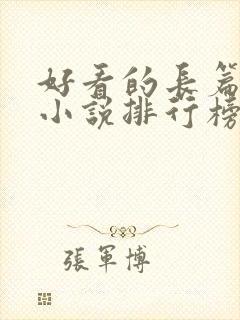 好看的長篇
小說排行榜
張軍博